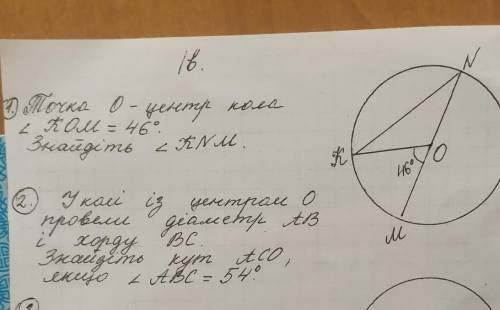 Ів.
1. Точка О - центр кола
∠ КОМ = 46°.
Знайдіть ∠ KNM.
N
К
О
46°
М
2. У колі із центром О
провели діаметр АВ
і хорду ВС.
Знайдіть кут АСО,
якщо ∠ АВС = 54°.